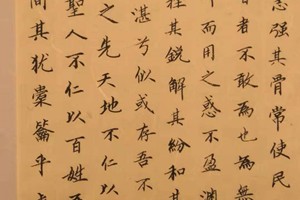 志强其骨常使民
者不敢為也為無
而用之惑不盈渊
其銳解其紛和其
湛兮似或存吾不
之先天地不仁以
聖人不仁以百姓
間其猶橐籥乎